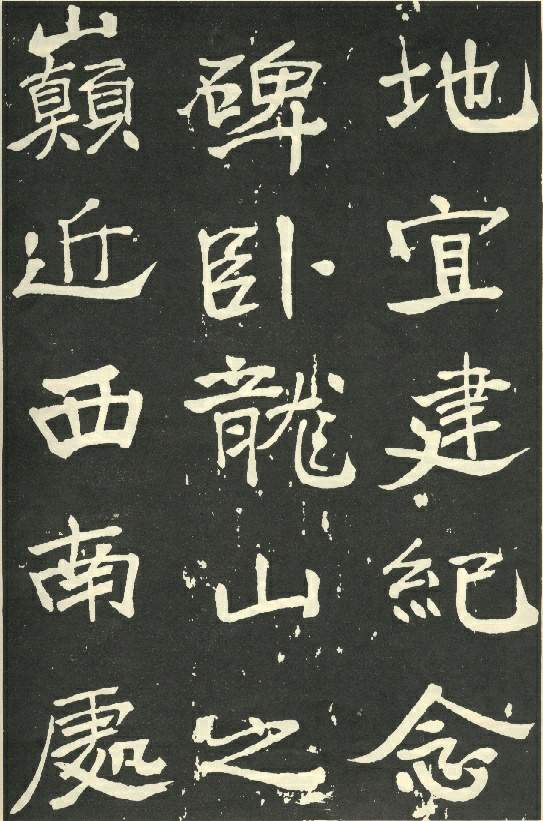 地宜建紀念
碑卧龍山之
巔近西南處